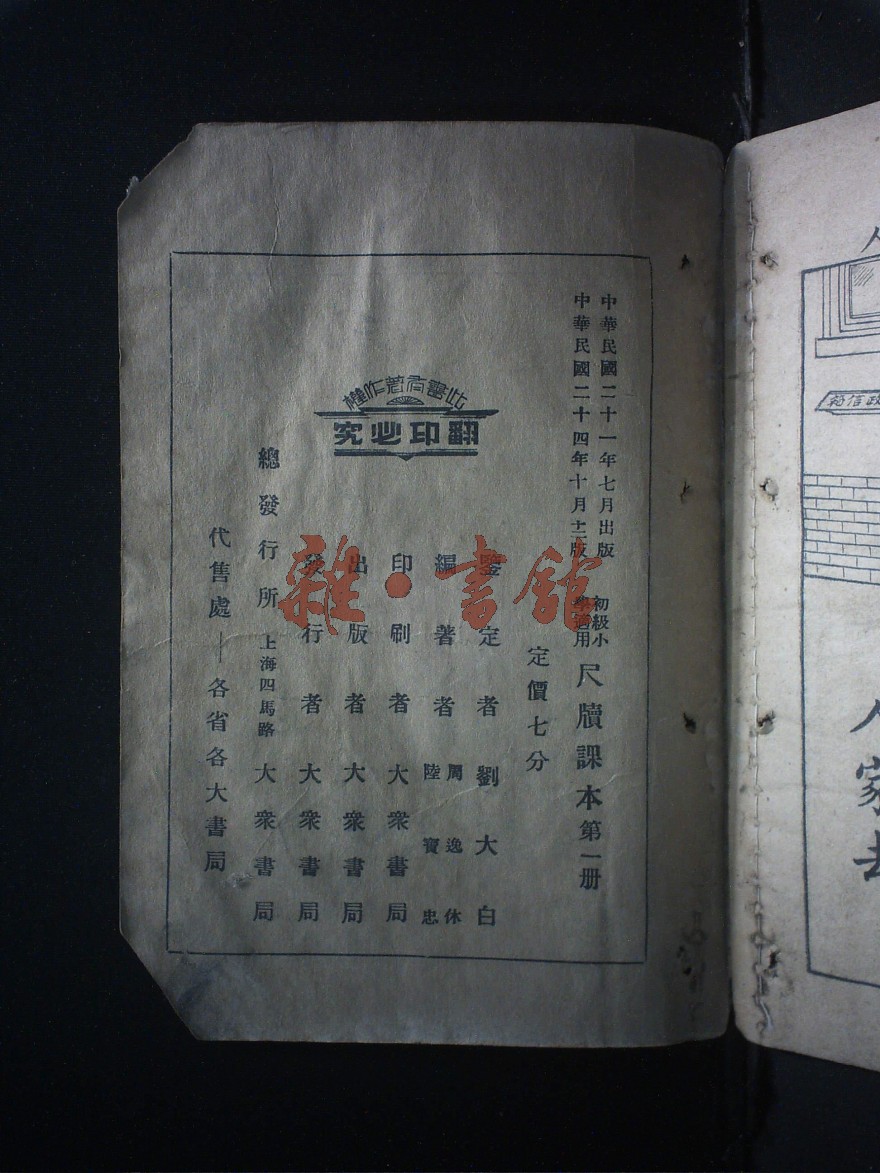 中華民國二十一年七月出版
中華民國二十四年十月十二版
初級小
學適用
尺牘課本第一册
定價七分
鑒定者劉大白
編著者
周逸休
陸寶忠
印刷者大衆書局
出版者大衆書局
發行者大衆書局
總發行所上海四馬路大衆書局
代售處—各省各大書局
此書有著作權
翻印必究
雜·書館
政信箱
人家去